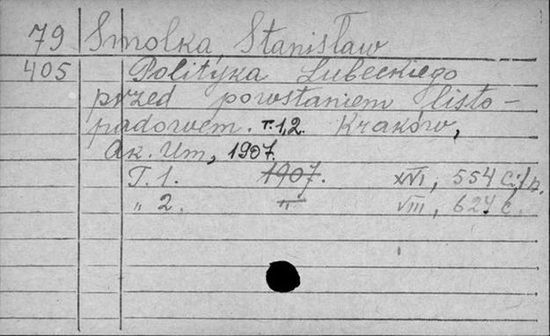 79 Smolka, Stanisław
405 Polityka Lubeckiego
przed powstaniem listo-
padowem. T. 1,2. Kraków,
Ak. Um, 1907.
T. 1. 1907. XVI, 554 c.;
„ 2. „ VIII, 624 c.